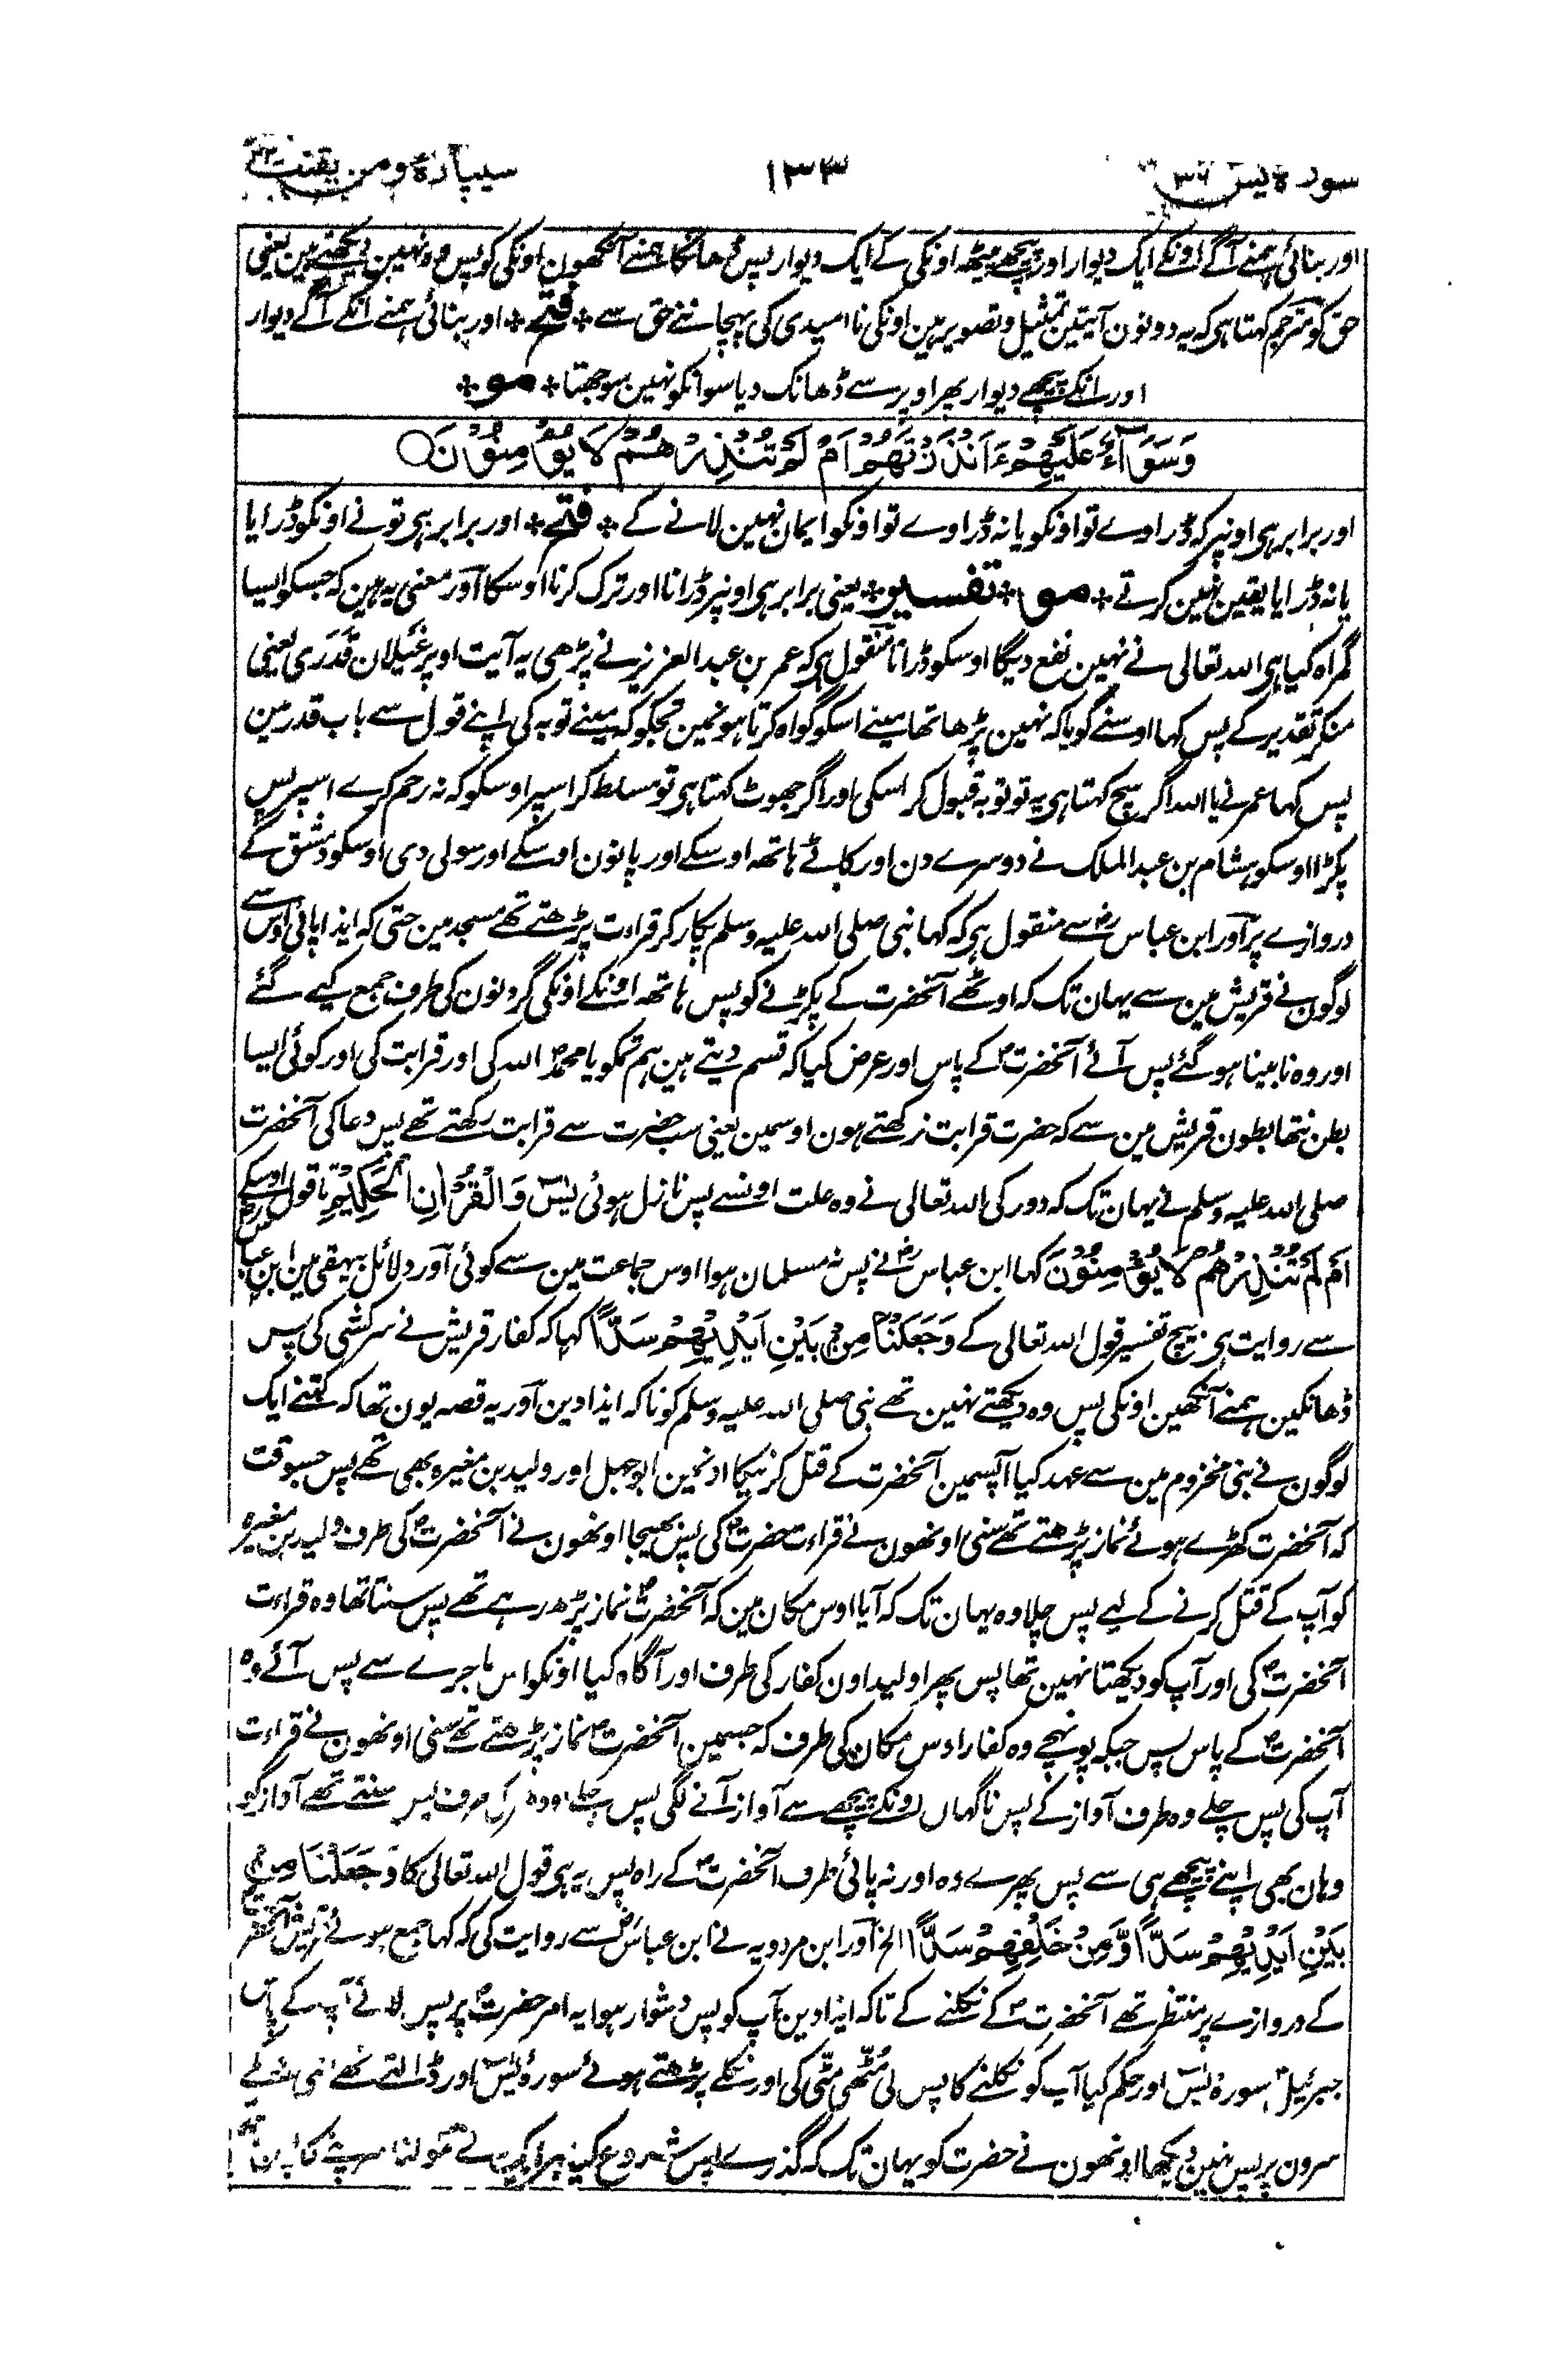 سورة یس ۳۶ ۱۳۳ سیپارہ ومن یقنت
اور بنائی ہمنے آگے اونکے ایک دیوار اور پیچھے پیٹھہ اونکی کے ایک دیوار پس ڈھانکا ہمنے آنکھون اونکی کو پس وہ نہین دیکھتے ہین یعنی
حق کو مترجم کہتا ہی کہ یہ دونون آیتین تمثیل و تصویر ہین اونکی ناامیدی کی پہچاننے حق سے * فتح * اور بنائی ہمنے انکے آگے دیوار
اور انکے پیچھے دیوار پھر اوپر سے ڈھانک دیا سو انکو نہین سوجھتا * مو *
وَسَوَآءٌ عَلَیْهِمْ ءَاَنْذَرْتَهُمْ اَمْ لَمْ تُنْذِرْهُمْ لَا یُؤْمِنُوْنَ
اور برابر ہی اونپر کہ ڈراوے تو اونکو یا نہ ڈراوے تو اونکو ایمان نہین لانے کے * فتح * اور برابر ہی تو نے اونکو ڈرایا
یا نہ ڈرایا یقین نہین کرتے * مو * تفسیر * یعنی برابر ہی اونپر ڈرانا اور ترک کرنا اوسکا اور معنی یہ ہین کہ جسکو ایسا
گمراہ کیا ہی اللہ تعالی نے نہین نفع دیگا اوسکو ڈرانا منقول ہی کہ عمر بن عبد العزیز نے پڑھی یہ آیت اوپر غیلان قدری یعنی
منکر تقدیر کے پس کہا اوسنے گویا کہ نہین پڑھا تھا مینے اسکو گواہ کرتا ہونمین تجکو کہ مینے توبہ کی اپنے قول سے باب قدر مین
پس کہا عمر نے یا اللہ اگر سچ کہتا ہی یہ تو توبہ قبول کر اسکی اور اگر جھوٹ کہتا ہی تو مسلط کر اسپر اوسکو کہ نہ رحم کرے اسپر پس
پکڑا اوسکو ہشام بن عبد الملک نے دوسرے دن اور کاٹے ہاتھہ اوسکے اور پانون اوسکے اور سولی دی اوسکو دمشق کے
دروازے پر اور ابن عباس رض سے منقول ہی کہ کہا نبی صلی اللہ علیہ وسلم پکار کر قراءت پڑھتے تھے مسجد مین حتی کہ ایذا پائی اوس سے
لوگون نے قریش مین سے یہان تک کہ اوٹھے آنحضرت کے پکڑنے کو پس ہاتھہ اونکے اونکی گردنون کی طرف جمع کیے گئے
اور وہ نابینا ہو گئے پس آئے آنحضرت ص کے پاس اور عرض کیا کہ قسم دیتے ہین ہم تمکو یا محمد اللہ کی اور قرابت کی اور کوئی ایسا
بطن نتھا بطون قریش مین سے کہ حضرت قرابت نرکھتے ہون اوسمین یعنی سب حضرت سے قرابت رکھتے تھے پس دعا کی آنحضرت
صلی اللہ علیہ وسلم نے یہان تک کہ دور کی اللہ تعالی نے وہ علت اونسے پس نازل ہوئی یٰسٓ وَالْقُرْاٰنِ الْحَکِیْمِ تا قول اوسکے
اَمْ لَمْ تُنْذِرْهُمْ لَا یُؤْمِنُوْنَ کہا ابن عباس رض نے پس نہ مسلمان ہوا اوس جماعت مین سے کوئی اور دلائل بیہقی مین ابن عباس رض
سے روایت ہی بیچ تفسیر قول اللہ تعالی کے وَجَعَلْنَا مِنْ بَیْنِ اَیْدِیْهِمْ سَدًّا کہا کہ کفار قریش نے سرکشی کی پس
ڈھانکین ہمنے آنکھین اونکی پس وہ دیکھتے نہین تھے نبی صلی اللہ علیہ وسلم کو تاکہ ایذا دین اور یہ قصہ یون تھا کہ کتنے ایک
لوگون نے بنی مخزوم مین سے عہد کیا آپسمین آنحضرت کے قتل کرنیکا اونمین ابوجہل اور ولید بن مغیرہ بھی تھے پس جسوقت
کہ آنحضرت کھڑے ہوئے نماز پڑھتے تھے سنی اونھون نے قراءت حضرت ص کی پس بھیجا اونھون نے آنحضرت ص کی طرف ولید بن مغیرہ
کو آپ کے قتل کرنے کے لیے پس چلا وہ یہان تک کہ آیا اوس مکان مین کہ آنحضرت ص نماز پڑھ رہے تھے پس سنتا تھا وہ قراءت
آنحضرت ص کی اور آپ کو دیکھتا نہین تھا پس پھرا ولید اون کفار کی طرف اور آگاہ کیا اونکو اس ماجرے سے پس آئے وہ
آنحضرت ص کے پاس پس جبکہ پونہچے وہ کفار اوس مکان کی طرف کہ جسمین آنحضرت ص نماز پڑھتے تھے سنی اونھون نے قراءت
آپ کی پس چلے وہ طرف آواز کے پس ناگہان اونکے پیچھے سے آواز آنے لگی پس چلے وہ کی طرف پس سنتے تھے آواز کو
وہان بھی اپنے پیچھے ہی سے پس پھرے وہ اور نہ پائی طرف آنحضرت ص کے راہ پس یہ ہی قول اللہ تعالی کا وَجَعَلْنَا مِنْ
بَیْنِ اَیْدِیْهِمْ سَدًّا وَّمِنْ خَلْفِهِمْ سَدًّا الخ اور ابن مردویہ نے ابن عباس رض سے روایت کی کہ کہا جمع ہوئے قریش آنحضرت
کے دروازے پر منتظر تھے آنحضرت ص کے نکلنے کے تاکہ ایذا دین آپ کو پس دشوار ہوا یہ امر حضرت ص پر پس لائے آپ کے پاس
جبرئیل سورۂ یٰس اور حکم کیا آپ کو نکلنے کا پس لی مٹھی مٹی کی اور نکلے پڑھتے ہوئے سورۂ یٰس اور ڈالتے تھے مٹی
سرون پر پس نہین دیکھا اونھون نے حضرت کو یہان تک کہ گذرے پس شروع کیا ہر ایک نے